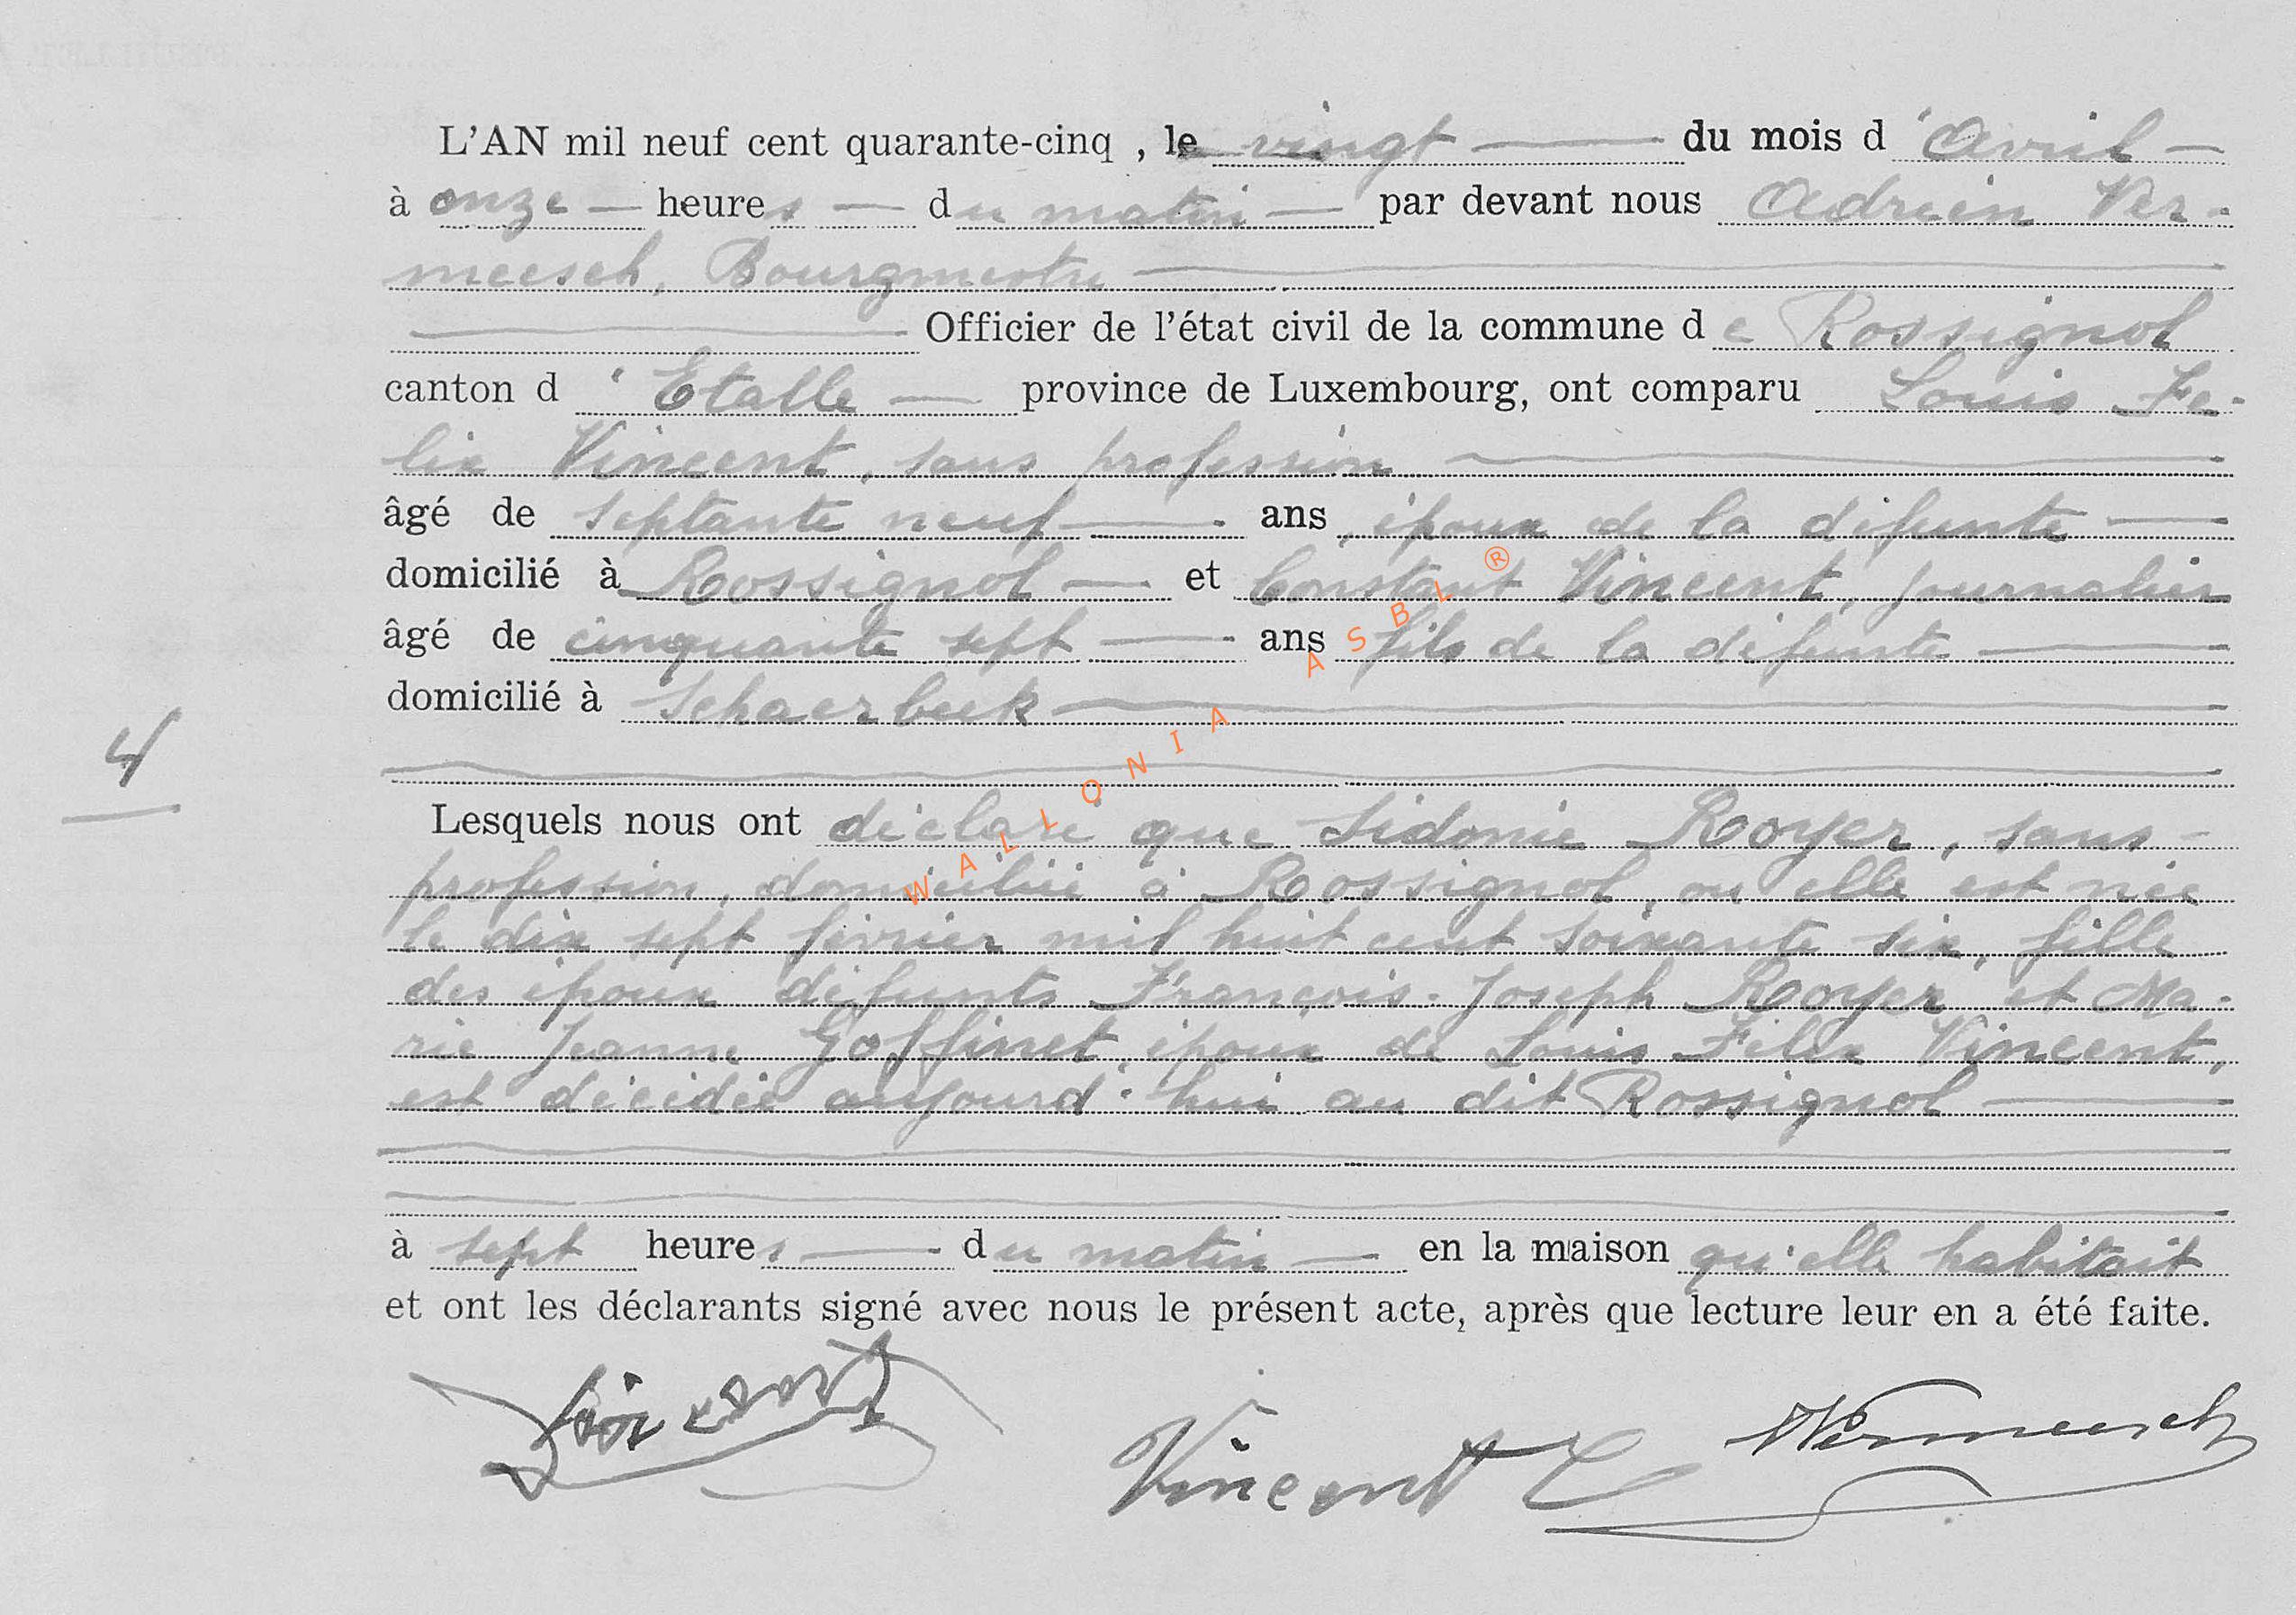 L'AN mil neuf cent quarante-cinq , le vingt — du mois d 'Avril —
à onze — heures — du matin — par devant nous Adrien Ver-
meesch, Bourgmestre —
— Officier de l'état civil de la commune de Rossignol
canton d 'Etalle — province de Luxembourg, ont comparu Louis Fe-
lix Vincent, sans profession —
âgé de septante neuf — ans, époux de la défunte —
domicilié à Rossignol — et Constant Vincent, journalier
âgé de cinquante sept — ans fils de la défunte —
domicilié à Schaerbeek —
4
Lesquels nous ont déclaré que Sidonie Royer, sans -
profession, domiciliée à Rossignol, ou elle est née
le dix sept février mil huit cent soixante six, fille
des époux défunts François-Joseph Royer et Ma-
rie Jeanne Goffinet, époux de Louis Félix Vincent,
est décédée aujourd'hui au dit Rossignol —
à sept heures — du matin — en la maison qu'elle habitait
et ont les déclarants signé avec nous le présent acte, après que lecture leur en a été faite.
Vincent Vincent C AVermeesch
WALLONIA ASBL ®